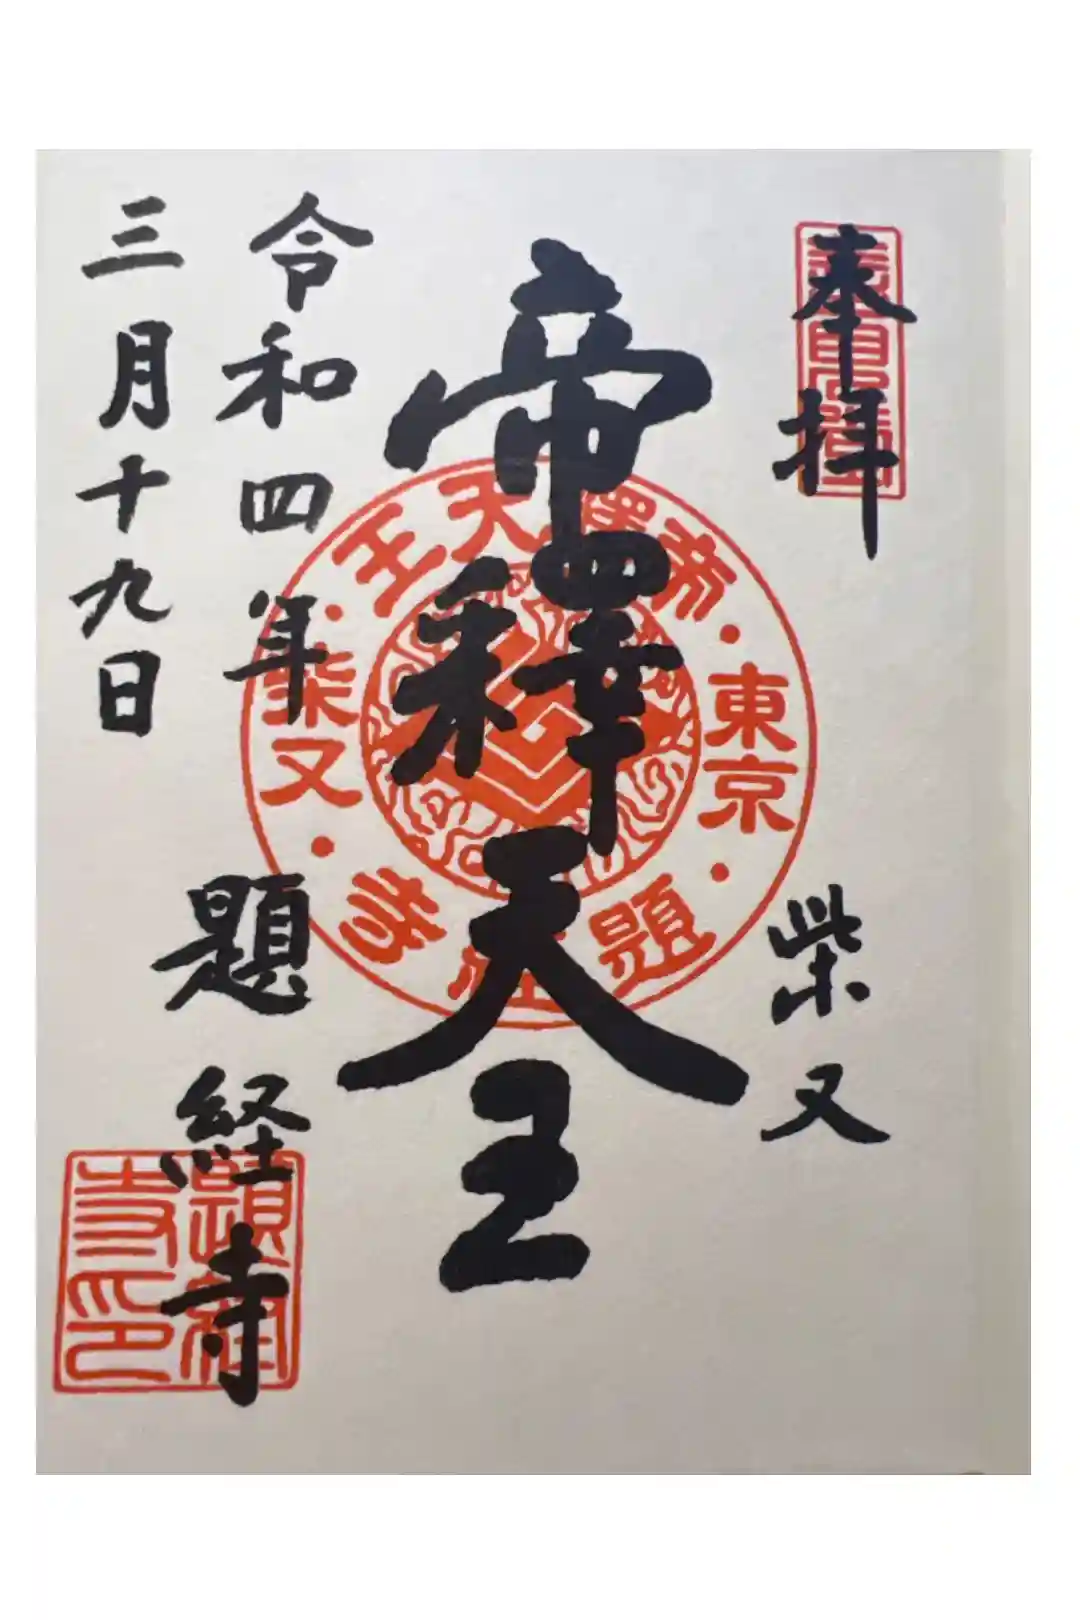 奉拝
柴又
帝釋天王
令和四年
三月十九日
題経寺
帝釋天王
東京
柴又
題経寺
題経寺印